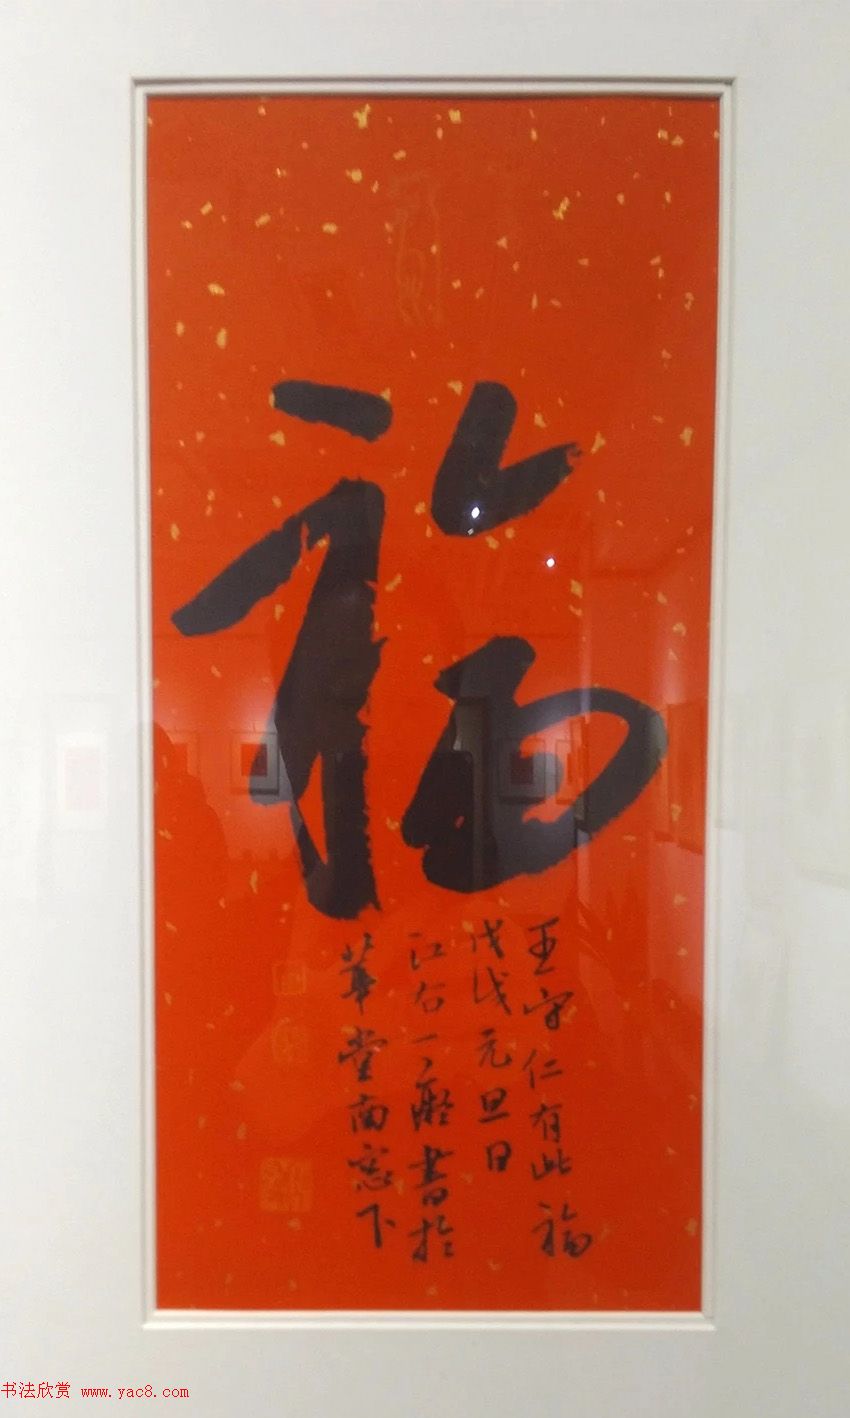 福
王守仁有此福
戊戌元旦日
江右一廨書於
華堂南窓下
书法欣赏 www.yac8.com